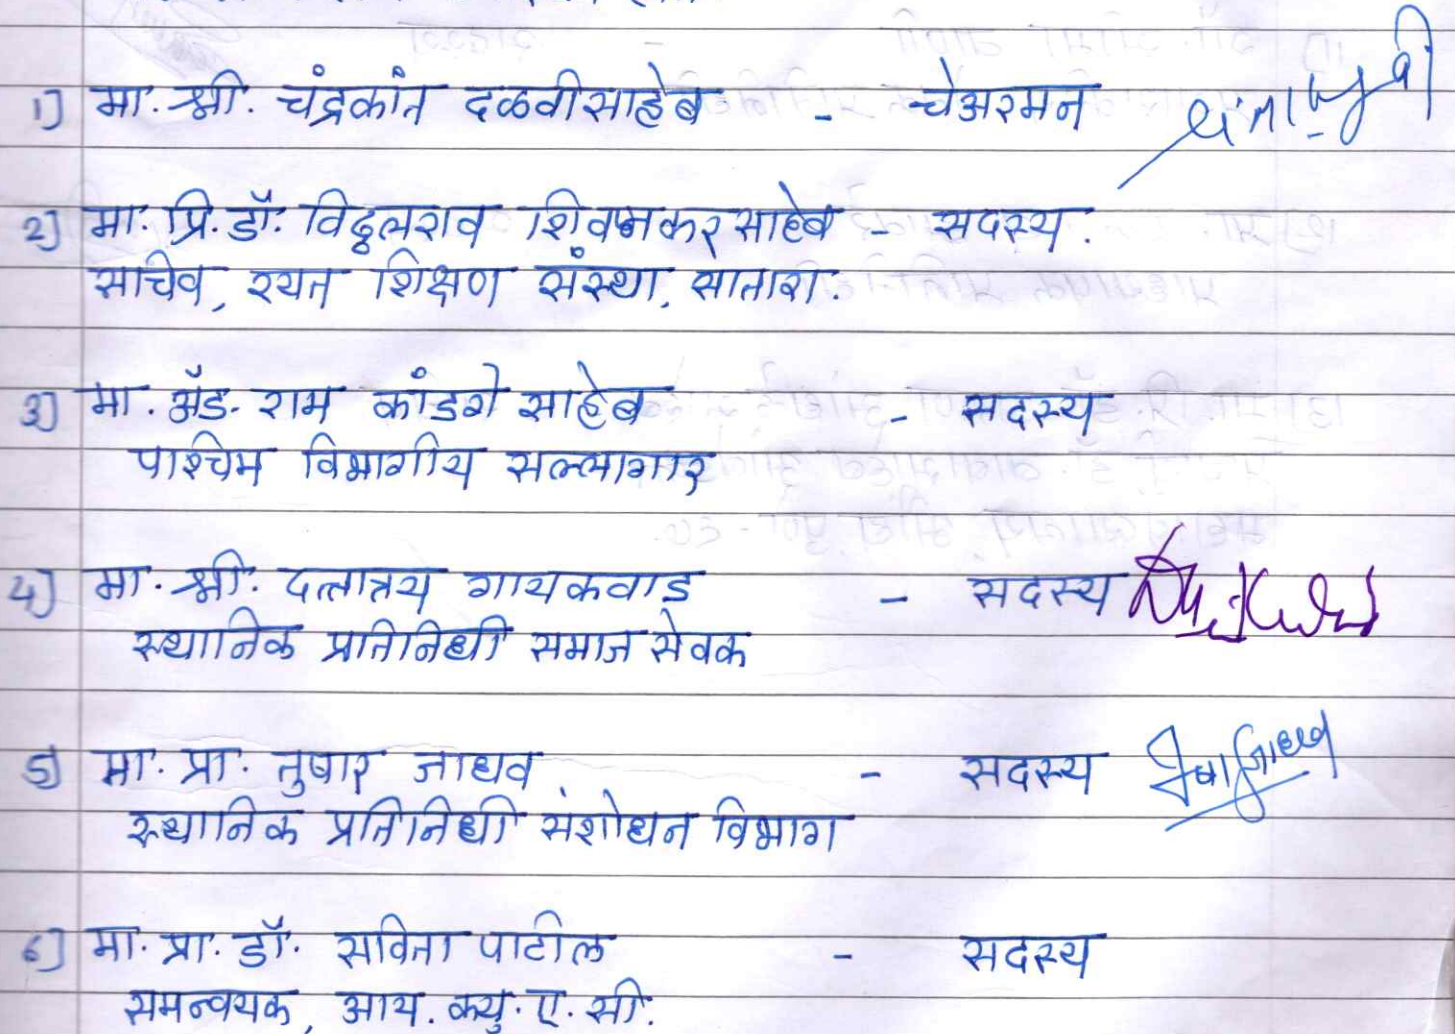 1] मा. श्री. चंद्रकांत दळवीसाहेब - चेअरमन
2] मा. प्रि. डॉ. विठ्ठलराव शिवणकर साहेब - सदस्य.
सचिव, रयत शिक्षण संस्था, सातारा.
3] मा. ॲड. राम कांडगे साहेब - सदस्य
पाश्चिम विभागीय सल्लागार
4] मा. श्री. दत्तात्रय गायकवाड - सदस्य
स्थानिक प्रतिनिधी समाज सेवक
5] मा. प्रा. तुषार जाधव - सदस्य
स्थानिक प्रतिनिधी संशोधन विभाग
6] मा. प्रा. डॉ. सविता पाटील - सदस्य
समन्वयक, आय. क्यु. ए. सी.